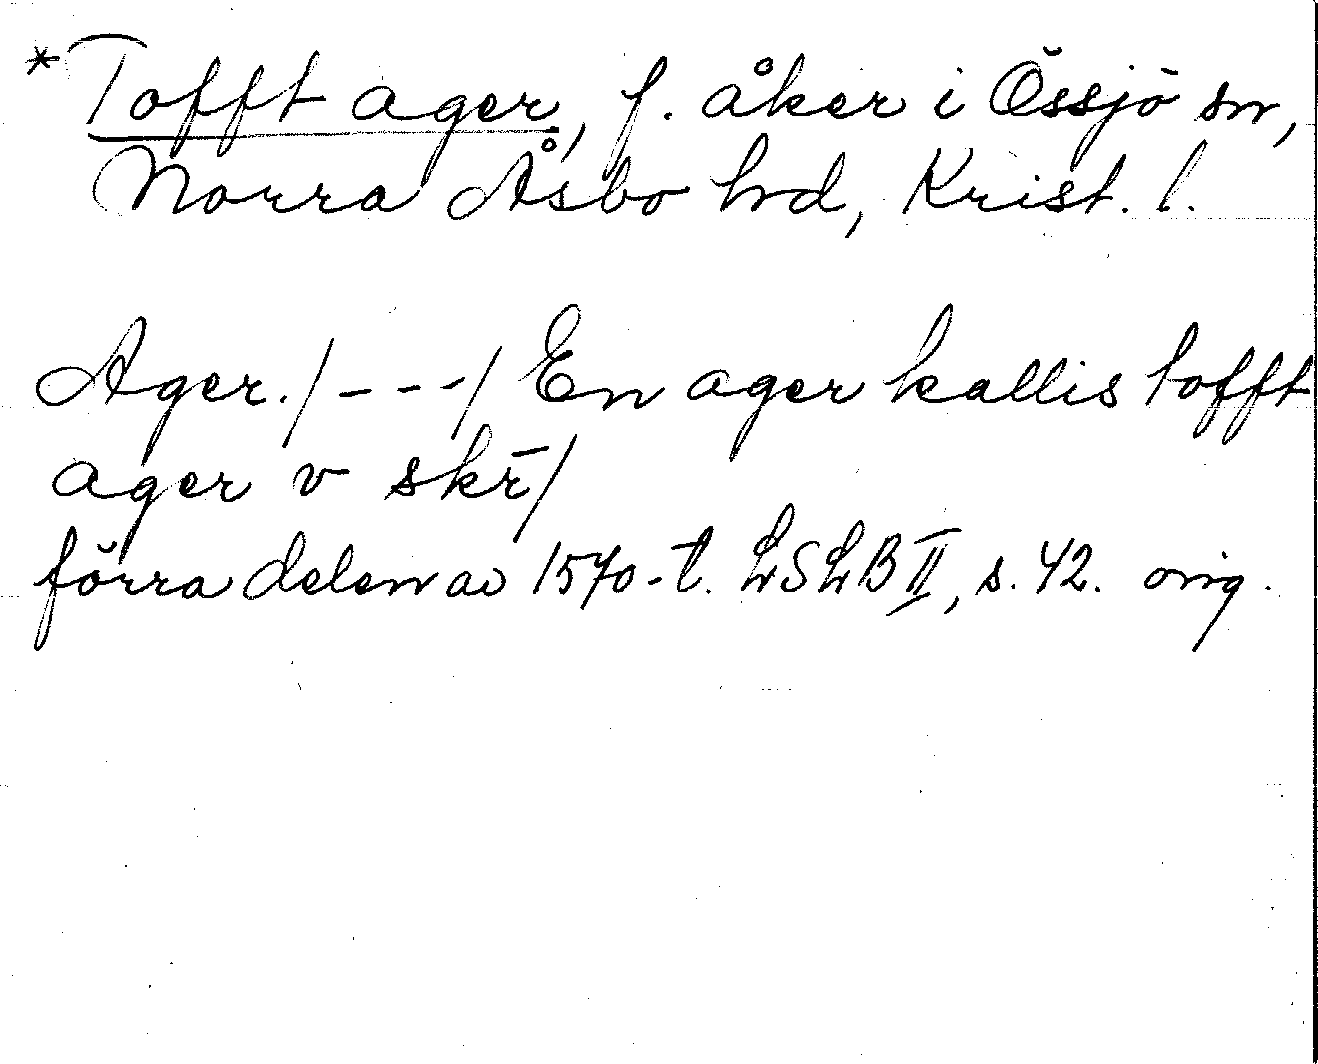 *Tofft ager, f. åker i Össjö sn,
Norra Åsbo hrd, Krist. l.
Ager. /---/ En ager kallis tofft
ager v skr̄/
förra delen av 1570-t. LSLB II, s. 42. orig.